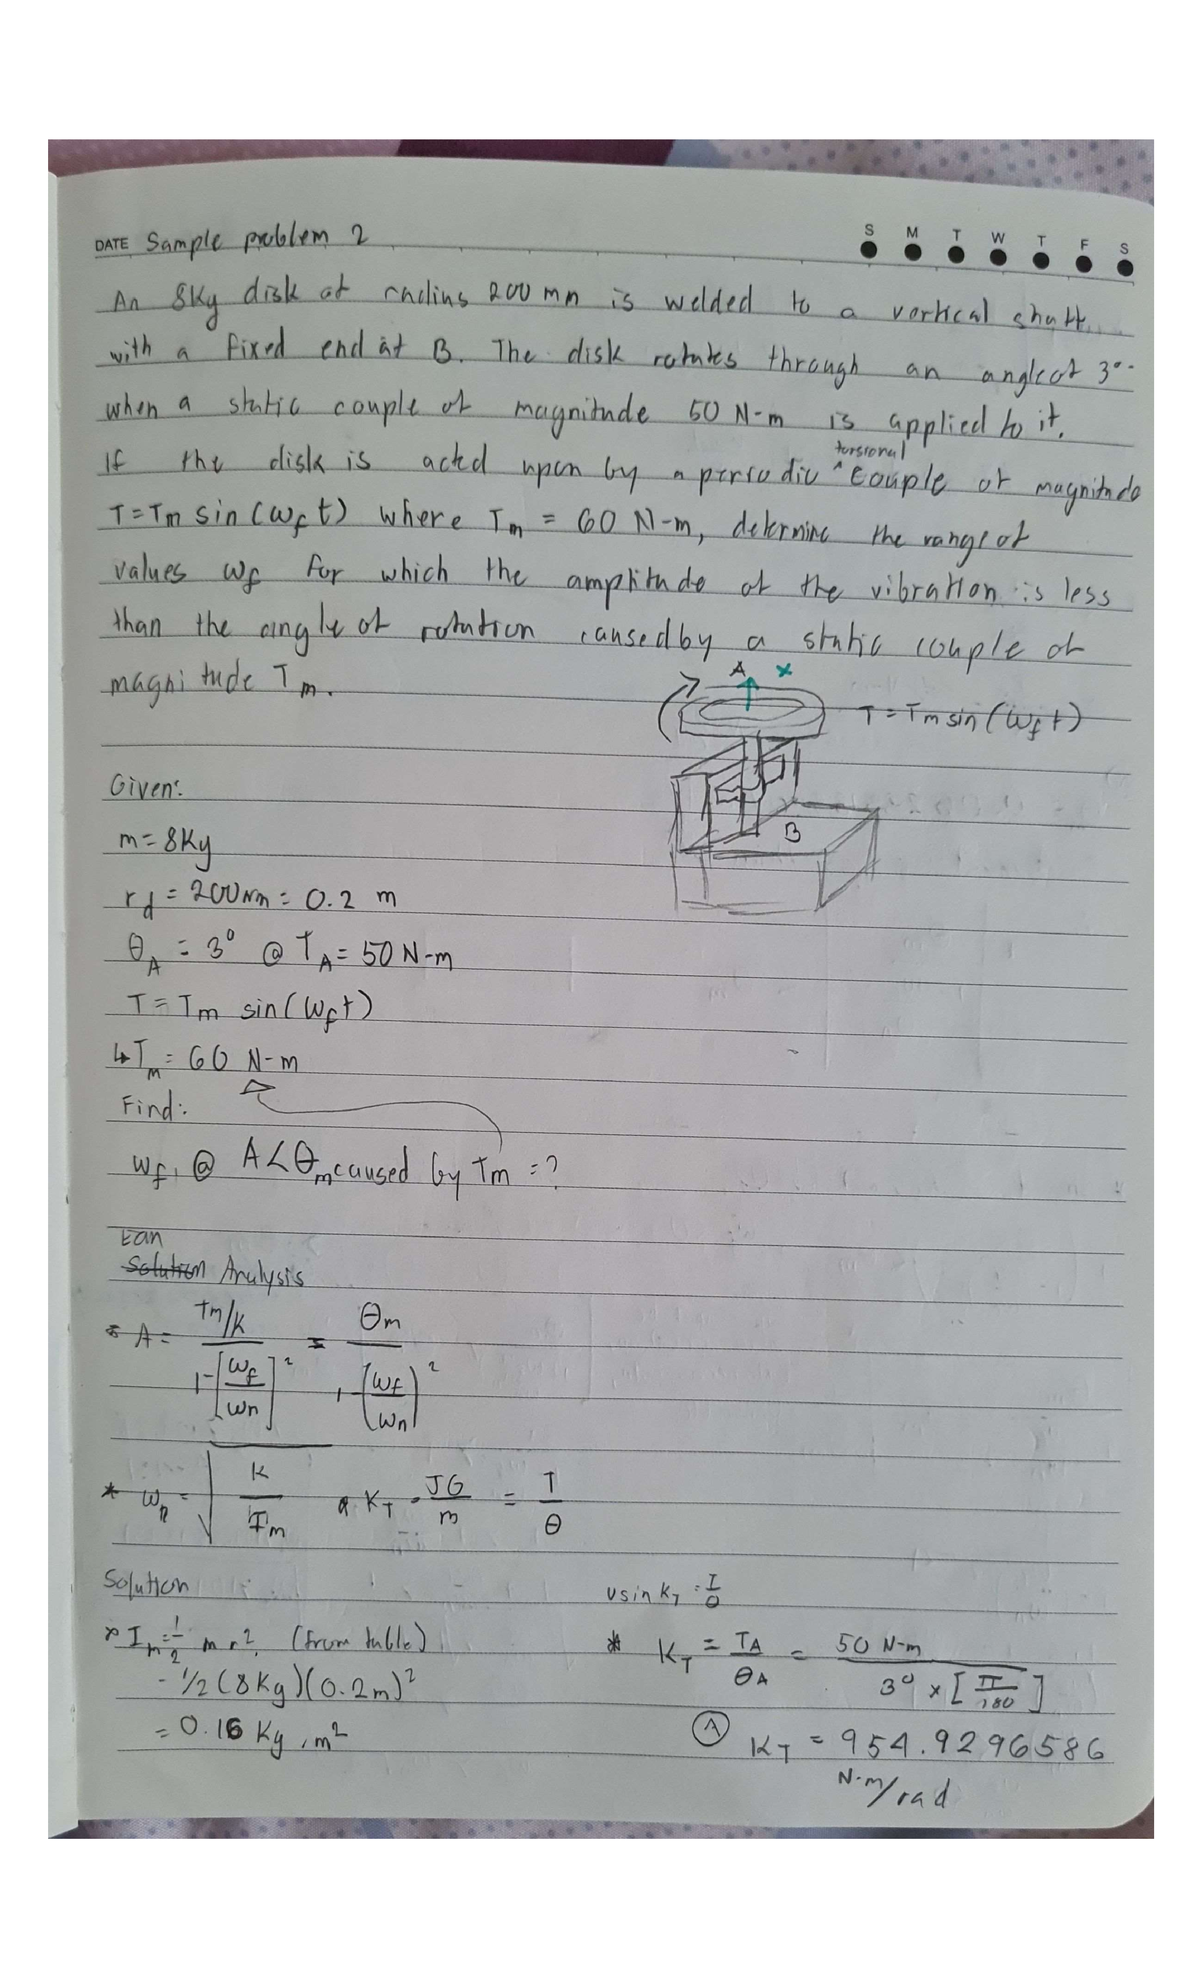 DATE Sample problem 2
S M T W T F S
An 8Kg disk of radius 200 mm is welded to a vertical shaft
with a fixed end at B. The disk rotates through an angle of 3°
when a static couple of magnitude 50 N-m is applied to it.
If the disk is acted upon by a periodic ^ torsional couple of magnitude
T = Tm sin(ωf t) where Tm = 60 N-m, determine the range of
values ωf for which the amplitude of the vibration is less
than the angle of rotation caused by a static couple of
magnitude Tm.
A x
T = Tm sin(ωf t)
B
Given:
m = 8Kg
rd = 200mm = 0.2 m
θA = 3° @ TA = 50 N-m
T = Tm sin(ωf t)
↳ Tm = 60 N-m
Find:
ωf, @ A < θm caused by Tm = ?
Ean
Solution Analysis
* A = (Tm/k) / (1 - [ωf/ωn]²) = θm / (1 - (ωf/ωn)²)
* ωn = √(K/Im) * KT = JG/m = T/θ
Solution
* Im = 1/2 m r², (from table)
= 1/2 (8Kg)(0.2m)²
= 0.16 Kg.m²
usin KT = T/θ
* KT = TA/θA = 50 N-m / (3° × [π/180])
(A) KT = 954.9296586
N.m/rad